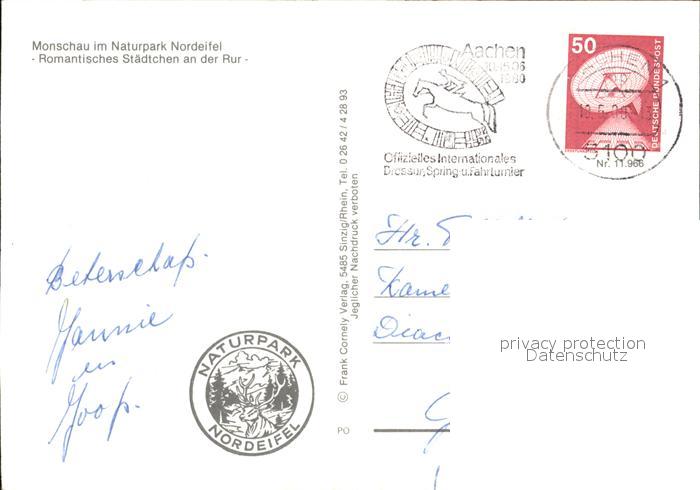 Monschau im Naturpark Nordeifel
- Romantisches Städtchen an der Rur -
Beterschap.
Jannie
en
Joop.
NATURPARK
NORDEIFEL
© Frank Cornely Verlag, 5485 Sinzig/Rhein, Tel. 0 26 42 / 4 28 93
Jeglicher Nachdruck verboten
PO
Aachen
Offizielles Internationales
Dressur, Spring- u. Fahrturnier
50
DEUTSCHE BUNDESPOST
5100
Nr. 11.966
Hr.
Kame
Diac
privacy protection
Datenschutz